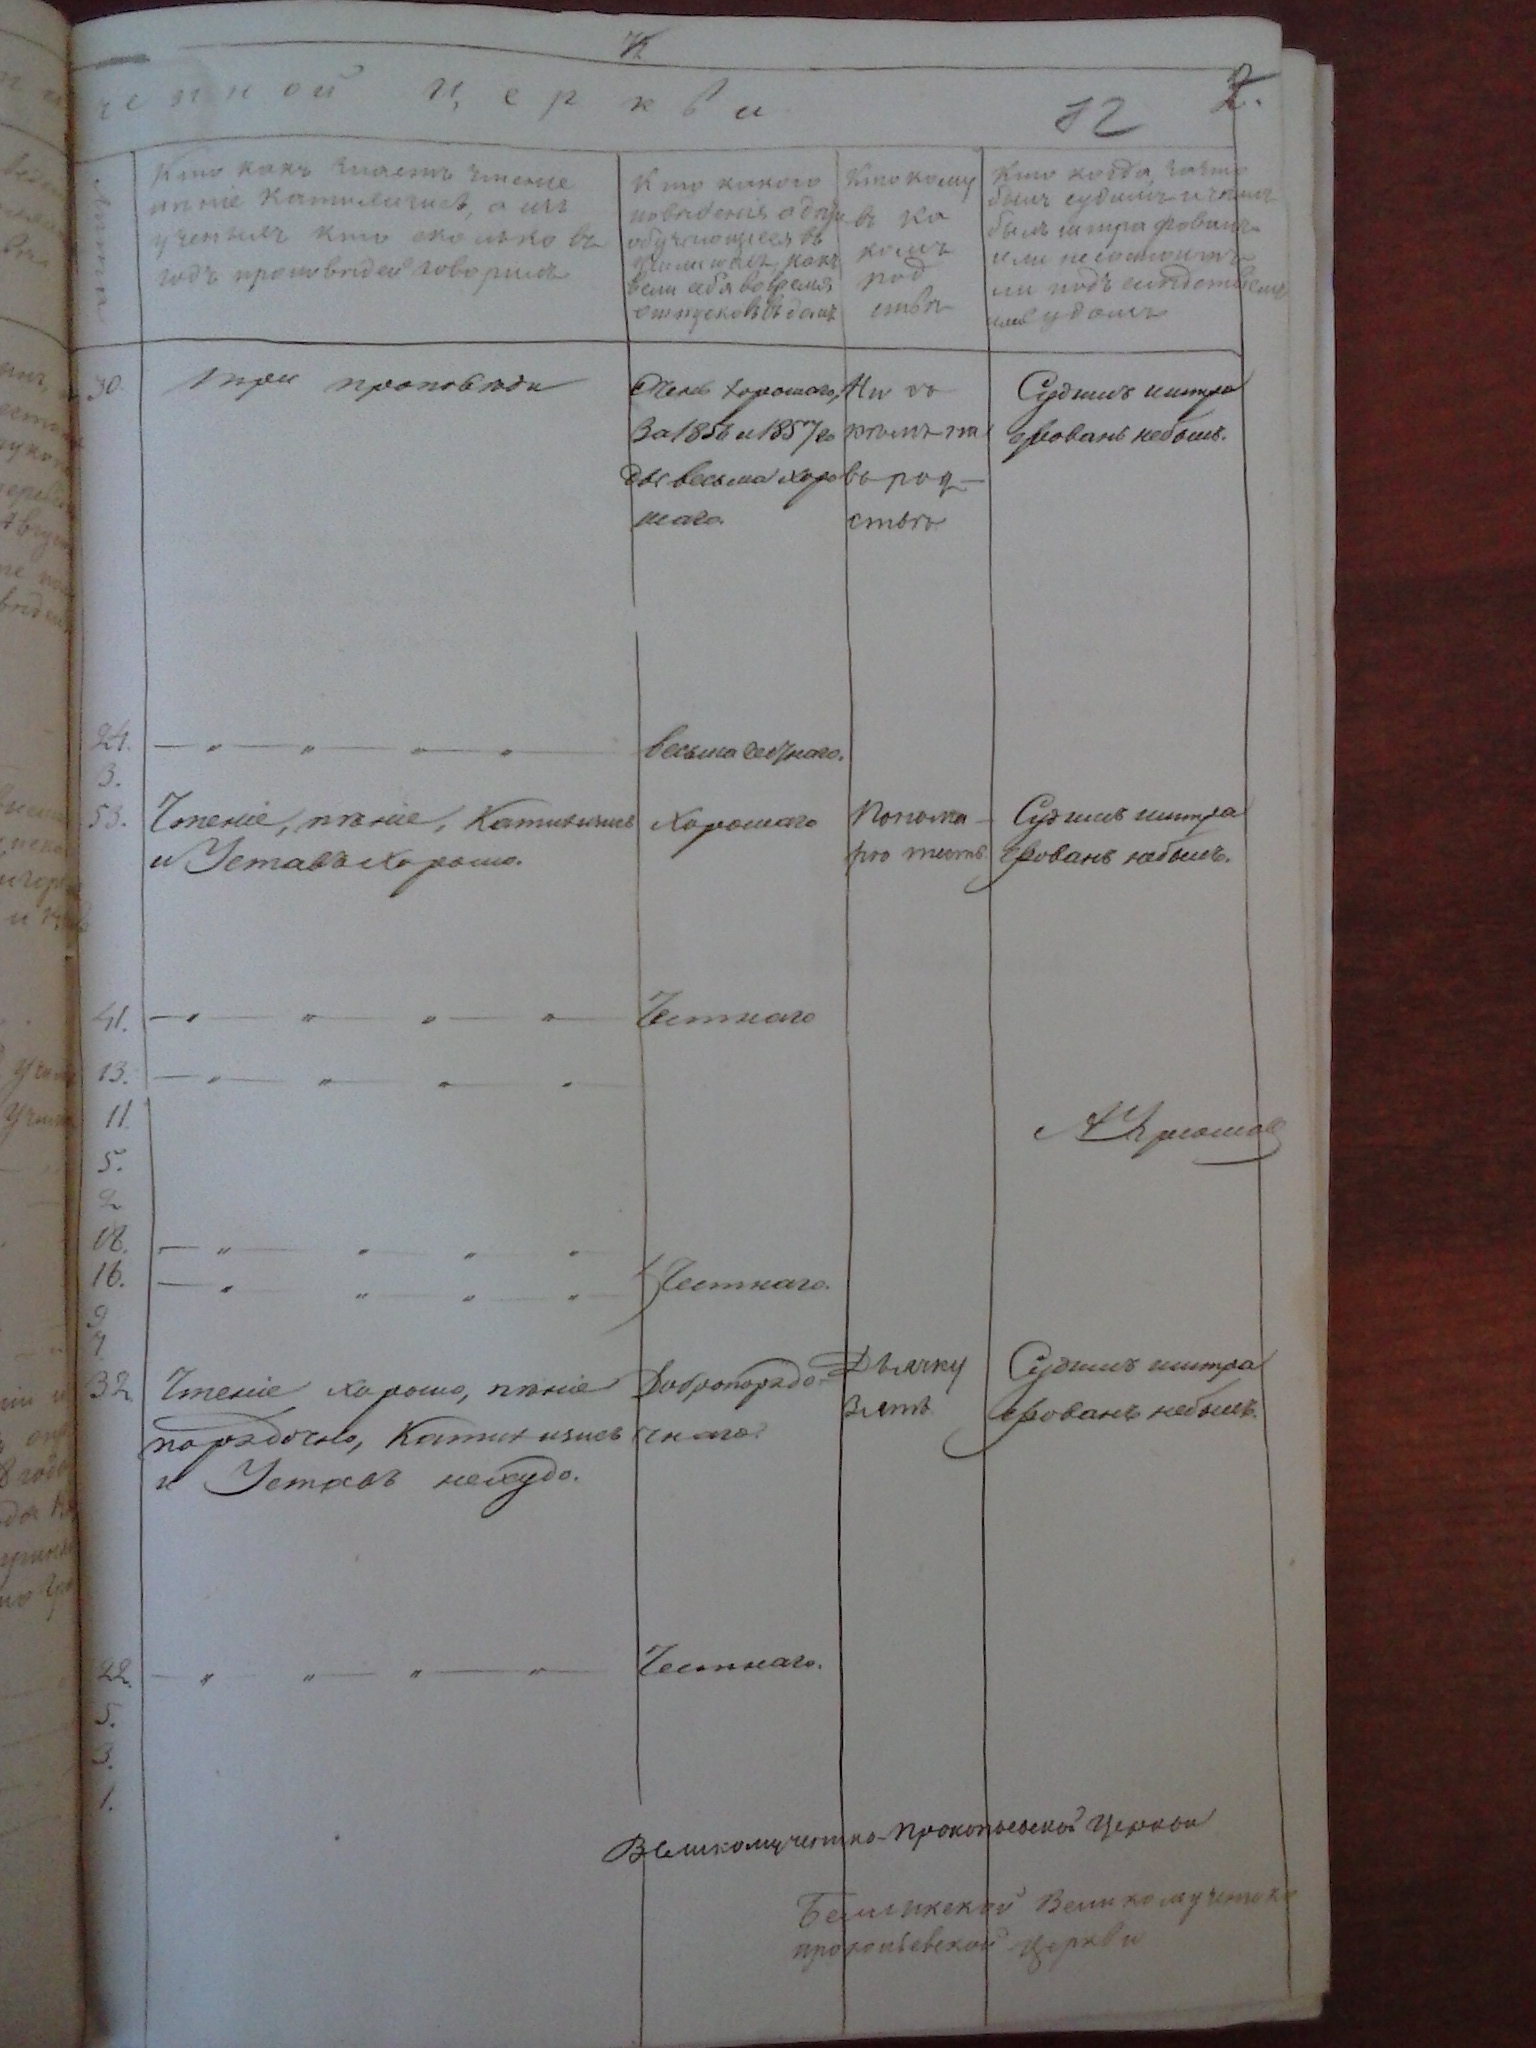 72
2.
ной церкви
12
Кто какъ знаетъ чтение
пѣніе Катихизисъ, а изъ
ученыхъ кто сколько въ
годъ проповѣдей говорилъ
Кто какого
поведенія
обучающіеся въ
училищахъ какъ
вели себя во время
отпусковъ въ домъ
Кто кому
въ ка
комъ
род
ствѣ
Кто когда, зачто
былъ судимъ и чѣмъ
былъ штрафованъ
или несостоитъ
ли подъ слѣдствіемъ
или судомъ
30. три проповѣди
Очень хорошаго,
За 1856 и 1857 го
ды весьма хоро
шаго.
Ни съ
кѣмъ не
въ род-
ствѣ
Судимъ и штра
фованъ небылъ.
24. — „ — „ — „ — „ — весьма честнаго.
3.
53. Чтеніе, пѣніе, Катихизисъ
и Уставъ хорошо.
Хорошаго
Понома-
рю тесть
Судимъ и штра
фованъ небылъ.
41. — „ — „ — „ — „ — Честнаго
13. — „ — „ — „ — „ —
11.
5.
2
18. — „ — „ — „ — „ —
16. — „ — „ — „ — „ — Честнаго.
9
7
32 Чтеніе хорошо, пѣніе
порядочно, Катихизисъ
и Уставъ нехудо.
Добропорядо-
чнаго.
Дьячку
зять
Судимъ и штра
фованъ небылъ.
22. — „ — „ — „ — „ — Честнаго.
5.
3.
1.
Великомученико-Прокопьевской Церкви
Великомученико
прокопьевской Церкви